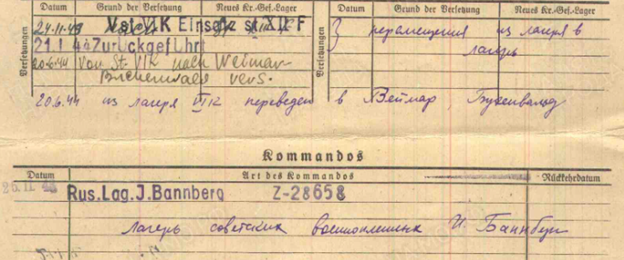 Datum Grund der Versetzung Neues Kr.-Gef.-Lager Datum Grund der Versetzung Neues Kr.-Gef.-Lager
Versetzungen
24.11.43 VI K Einsatz st. XII F
21.1.44 Zurückgeführt
20.6.44 Von St. VI K nach Weimar-
Buchenwald vers.
Versetzungen
перемещения из лагеря в
лагерь
20.6.44 из лагеря VI K переведен в Веймар, Бухенвальд
Kommandos
Datum Art des Kommandos Rückkehrdatum
26.11.43 Rus.Lag.J.Bannberg Z-28658
лагерь советских военнопленных И. Баннберг